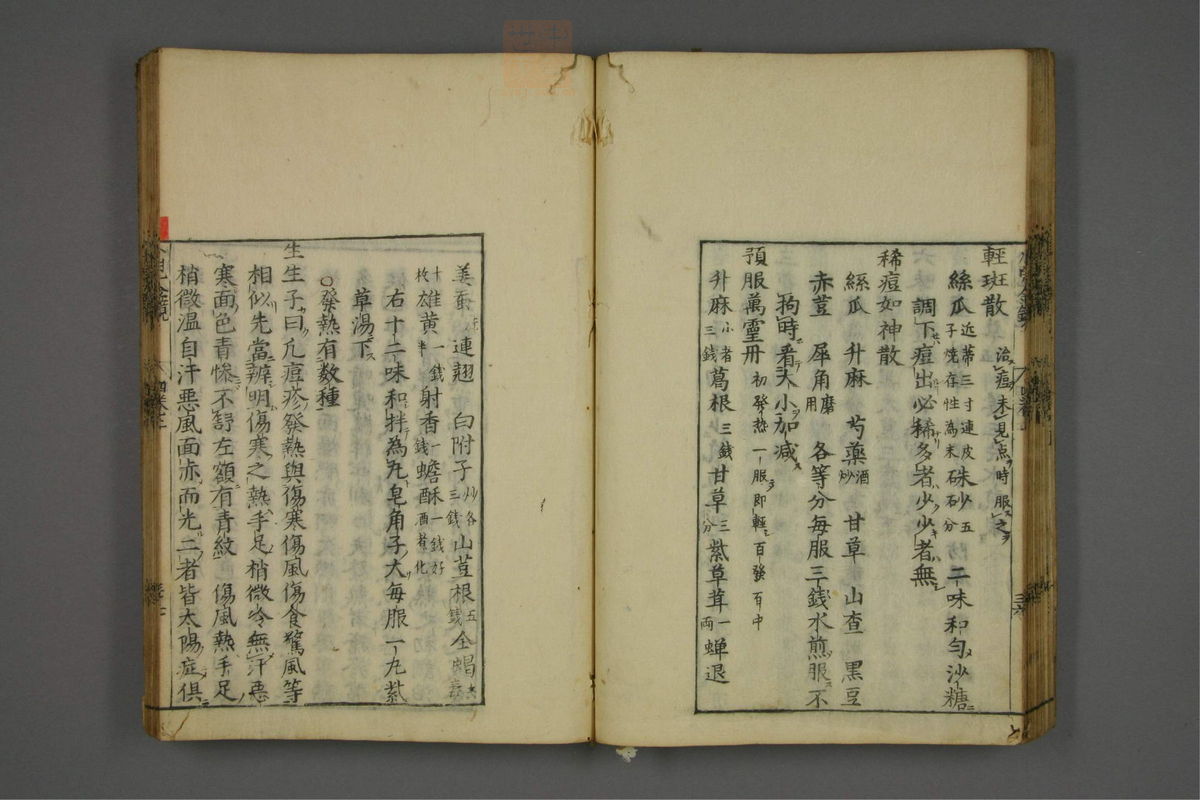 輕斑散 治痘未見点時服之
絲瓜近蒂三寸連皮子燒存性為末 硃砂五分 二味和勻沙糖
調下痘出必稀多者少少者無
稀痘如神散
絲瓜 升麻 芍藥酒炒 甘草 山查 黒豆
赤荳 犀角磨用 各等分每服三錢水煎服不
拘時看大小加減
預服萬靈丹 初發热一服即輕百發百中
升麻三錢 葛根三錢 甘草三分 紫草茸一両 蝉退
姜蚕 連翹 白附子炒各三錢 山荳根五錢 全蝎
十枚 雄黄一錢半 射香一錢 蟾酥一錢好酒煮化
右十二味和拌為九皂角子大每服一九紫
草湯下
○發熱有数種
生生子曰凡痘疹發熱與傷寒傷風傷食驚風等
相似先當辨明傷寒之熱手足梢微冷無汗惡
寒面色青慘不舒左額有青紋 傷風熱手足
梢微温自汗惡風面赤而光二者皆太陽症俱